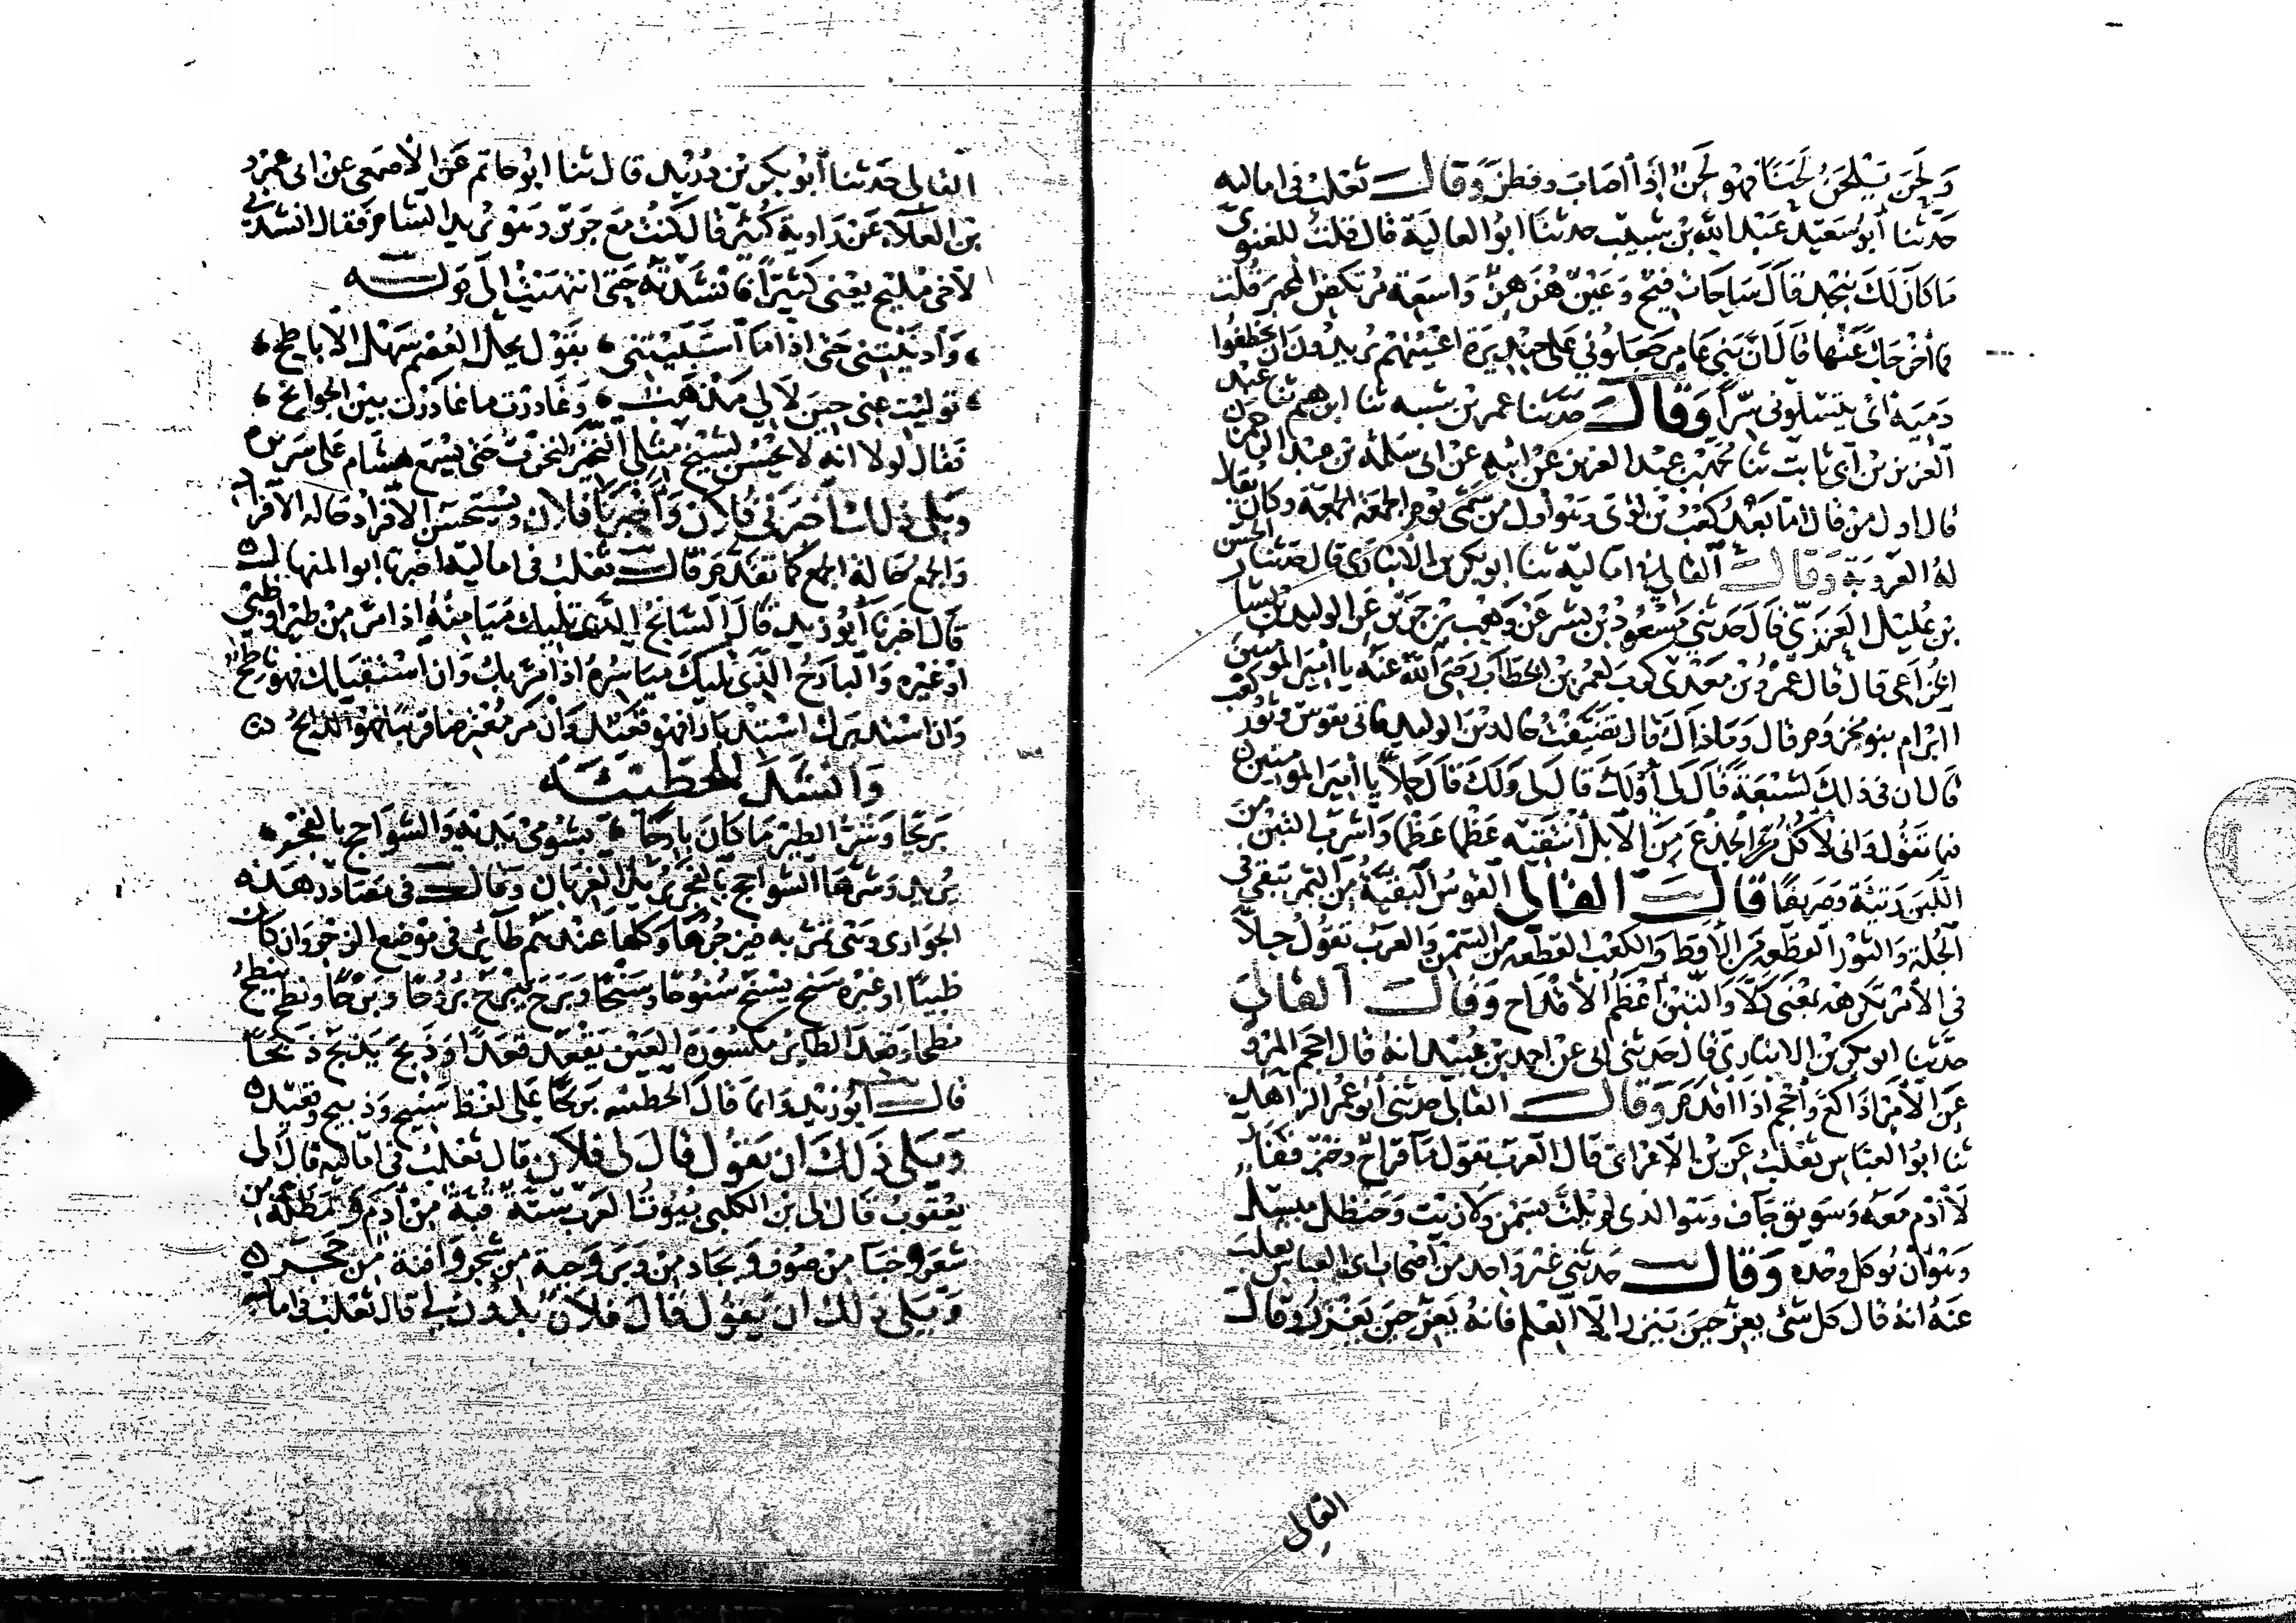 ولَحِنَ يَلْحَنُ لَحَنًا فهو لَحِنٌ اذا اصاب وفطن وقال ثعلب في اماليه
حدثنا أبو سعيد عبد الله بن شبيب حدثنا ابو العالية قال قلت للغنوي
ما كان لك بنجد قال ساحات فيح وعين هزهز واسعة مرتكض المجم قلت
فما أخرجك عنها قال ان بني عامر جعلوني على حنديرة اعينهم يريدون ان يختطفوا
دميه اى يقتلونى سرا وقال حدثنا عمر بن شبه ثنا ابرهيم ثنا عبد
العزيز بن أبي ثابت ثنا محمد بن عبد العزيز عن ابيه عن ابى سلمة بن عبد الرحمن
قال اول من قال اما بعد كعب بن لؤى وهو أول من سمى يوم الجمعة الجمعة وكان يقال
له العروبة وقال القالي في اماليه ثنا ابو بكر بن الانبارى قال حدثنا الحسن
بن عُليل العنزي قال حدثني مسعود بن بشر عن وهب بن جرير عن الوليد بن يسار
الخزاعي قال قال عمرو بن معدى كرب لعمر بن الخطاب رضى الله عنه يا امير المومنين
اابرام بنو مخزوم قال وما ذاك قال تضيفت خالد بن الوليد فاتى بقوس وثور وكعب
قال ان في ذلك لشبعة قال لى أو لك قال لى ولك قال حلا يا أمير المومنين
فيما تقول وانى لآكل الجذع من الابل أنتقيه عظما عظما وأشرب التبن من
اللبن رثيئة وصريفا قال القالى القوس البقية من التمر تبقى في
الجلة والثور القطعه من الاقط والكعب القطعه من السمن والعرب تقول حلًا
في الأمر تكرهه بمعنى كلا والتبن أعظم الأقداح وقال القالى
حدثنا ابو بكر بن الانبارى قال حدثنى ابى عن احمد بن عبيد انه قال احجم المرؤ
عن الأمر اذا كع وأجحم اذا اقدم وقال القالى حدثنى أبو عمر الزاهد
ثنا ابو العباس ثعلب عن بن الاعرابى قال العرب تقول ماء قراح وخبز قفار
لا أدم معه وسويق جاف وهو الذى لم يلت بسمن ولا زيت وحنظل مبسل
وهو أن يوكل وحده وقال حدثني غير واحد من أصحاب ابى العباس ثعلب
عنه انه قال كل شئ يعز حين ينزر الا العلم فانه يعز حين يغزر وقال
القالى
القالى حدثنا أبو بكر بن دُريد قال ثنا ابو حاتم عن الأصمعي عن ابى عمرو
بن العلاء عن راوية كثير قال كنت مع جرير وهو يريد الشام فقال انشدنى
لأخى مليح يعنى كثيرا فانشدته حتى انتهيت إلى قوله
وأدنيتنى حتى اذا ما استبيتنى بقول يحل العصم سهل الاباطح
توليت عنى حين لا لي مذهب وغادرت ما غادرت بين الجوانح
فقال لولا انه لا يحسن لشيخ مثلي النخير لنخرت حتى يسمع هشام على سريره
ويلى ذلك أخبرنى فلان وأخبرنا فلان ويستحسن الافراد حاله الافراد
والجمع حالة الجمع كما تقدم قال ثعلب في اماليه اخبرنا ابو المنهال
قال اخبرنا أبو زيد قال السانح الذي يليك ميامنه اذا مر من طير او ظبى
او غيره والبارح الذي يليك مياسره اذا مر بك وان استقبلك فهو ناطح
وان استدبرك استدبارا فهو قعيد وان مر معترضا قريبا فهو الذابح
وانشد للحطيئه
بريحا وشر الطير ما كان بارحا بشومى يديه والشواحج بالفجر
يريد وشرها الشواحج بالفجر يريد الغربان وقال في مصادر هذه
الجوارى وهى تمر به فيزجرها وكلها عندهم طائر فى موضع الزجر وان كان
ظبيا او غيره سنح يسنح سنوحا وسنحا وبرح يبرح بروحا وبرحا ونطح ينطح
نطحا وقعد الطائر مكسورة العين يقعد قعدا وذبح يذبح ذبحا
قال أبو زيد وانما قال الحطيئه بريحا على لفظ سنيح وذبيح وقعيد
ويلى ذلك ان يقول قال لى فلان قال ثعلب فى اماليه قال لى
يعقوب قال لى بن الكلبى بيوت العرب ستة قبة من أدم ومظلة من
شعر وخباء من صوف وبجاد من وبر وخيمة من شجر وأقنة من حجر
ويلى ذلك ان يقول قال فلان بدون لى قال ثعلب فى اماليه